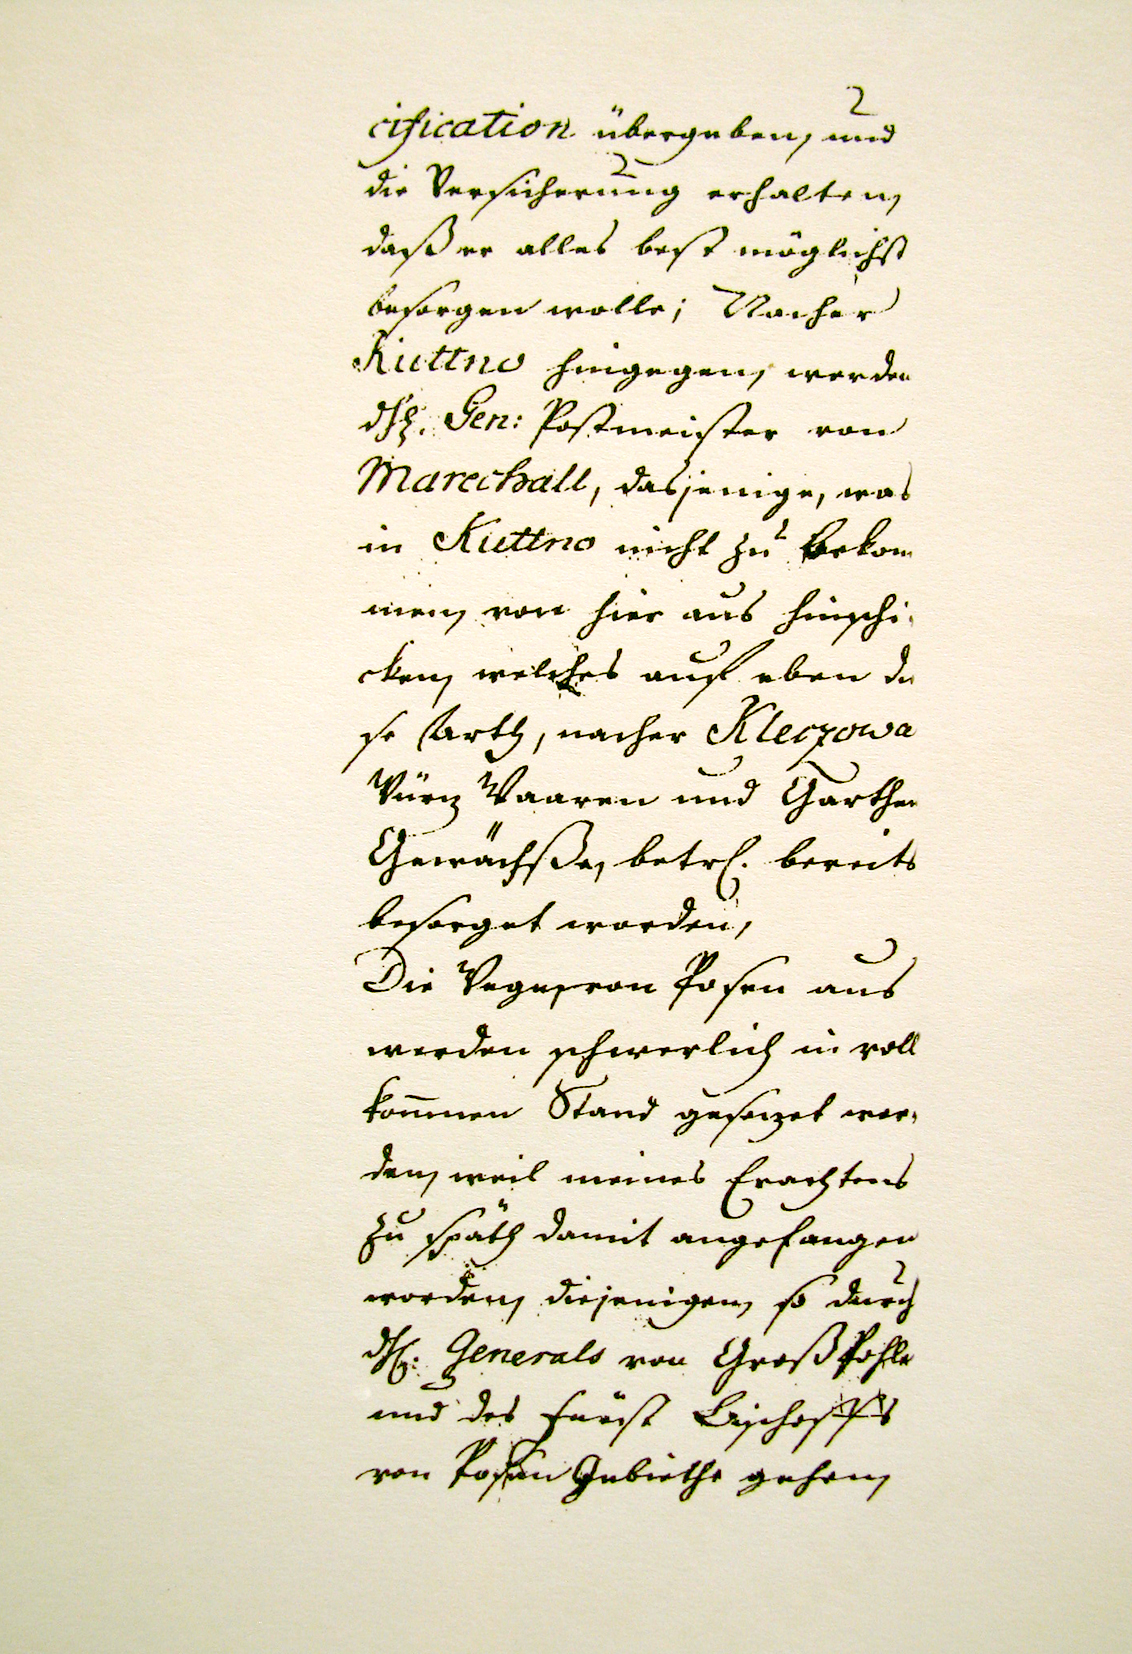 cification übergeben, und
die Versicherung erhalten,
daß er alles best möglichst
besorgen wolle; Nacher
Kuttno hingegen, werde
Gen: Postmeister von
Marechall, dasjenige, was
in Kuttno nicht zu bekom
men, von hier aus hinschi-
cken, welches auf eben die
se Arth, nacher Kleczowa
Würz Waaren und Garthen
Gewächße, betrf. bereits
besorget worden,
Die Wege, von Posen aus
werden schwerlich in voll
kommen Stand gesezet wer-
den, weil meines Erachtens
zu späth damit angefangen
worden, diejenigen, so durch
Generals von Groß Pohle
und des Fürst Bischoffs
von Posen Gebiethe gehen,